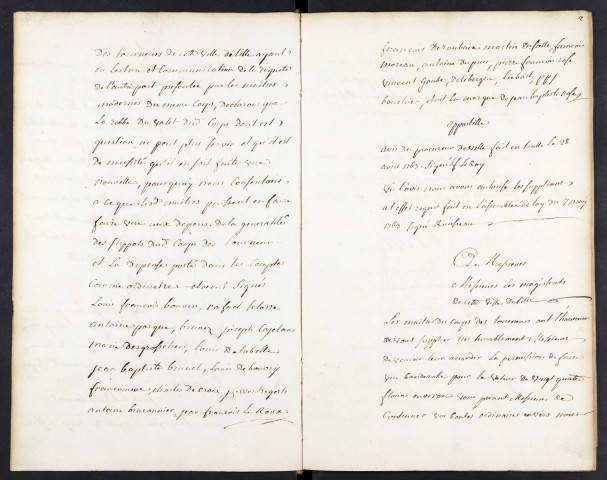 Des tourneurs de cette ville de lille ayant
eu lecture et Communication de la requete
de l'autre part presentée par les maitres
modernes du meme Corps, declarons que
la robbe du valet dud. Corps dont est
question ne peut plus servir et qu'il est
de necessité qu'il en soit faite une
nouvelle, pourquoy nous Consentons
a ce que lesd. maitres puissent en faire
faire une aux depens de la generalité
des supposts dud. Corps des tourneurs
et la depense portée dans les Comptes
Comme ordinaire étoient signés
Louis françois
antoine pacque, joseph
marie Degrossellier, Louis de labelle
jean baptiste brunel, Louis de
charles de Croix
antoine jean françois le Roux
2
francois De roubaix martin
moreau, antoine Dupuis, pierre francois
Vincent
la marque de jean baptiste
appostille
avis du procureur de ville fait en halle le 28
avril 1763. signé
Vu l'avis nous avons autorisé les supplians
a l'effet requis fait en l'assemblée de loy du 7 may
1763. signé
A Messieurs
Messieurs Les magistrats
De cette Ville de Lille
Les maitres du corps des tourneurs ont l'honneur
de vous supplier tres humblement Messieurs
de vouloir leur accorder la permission de faire
une pour la valeur de vingt quatre
florins environ vous priant Messieurs de
Continuer vos bontés ordinaires envers nous